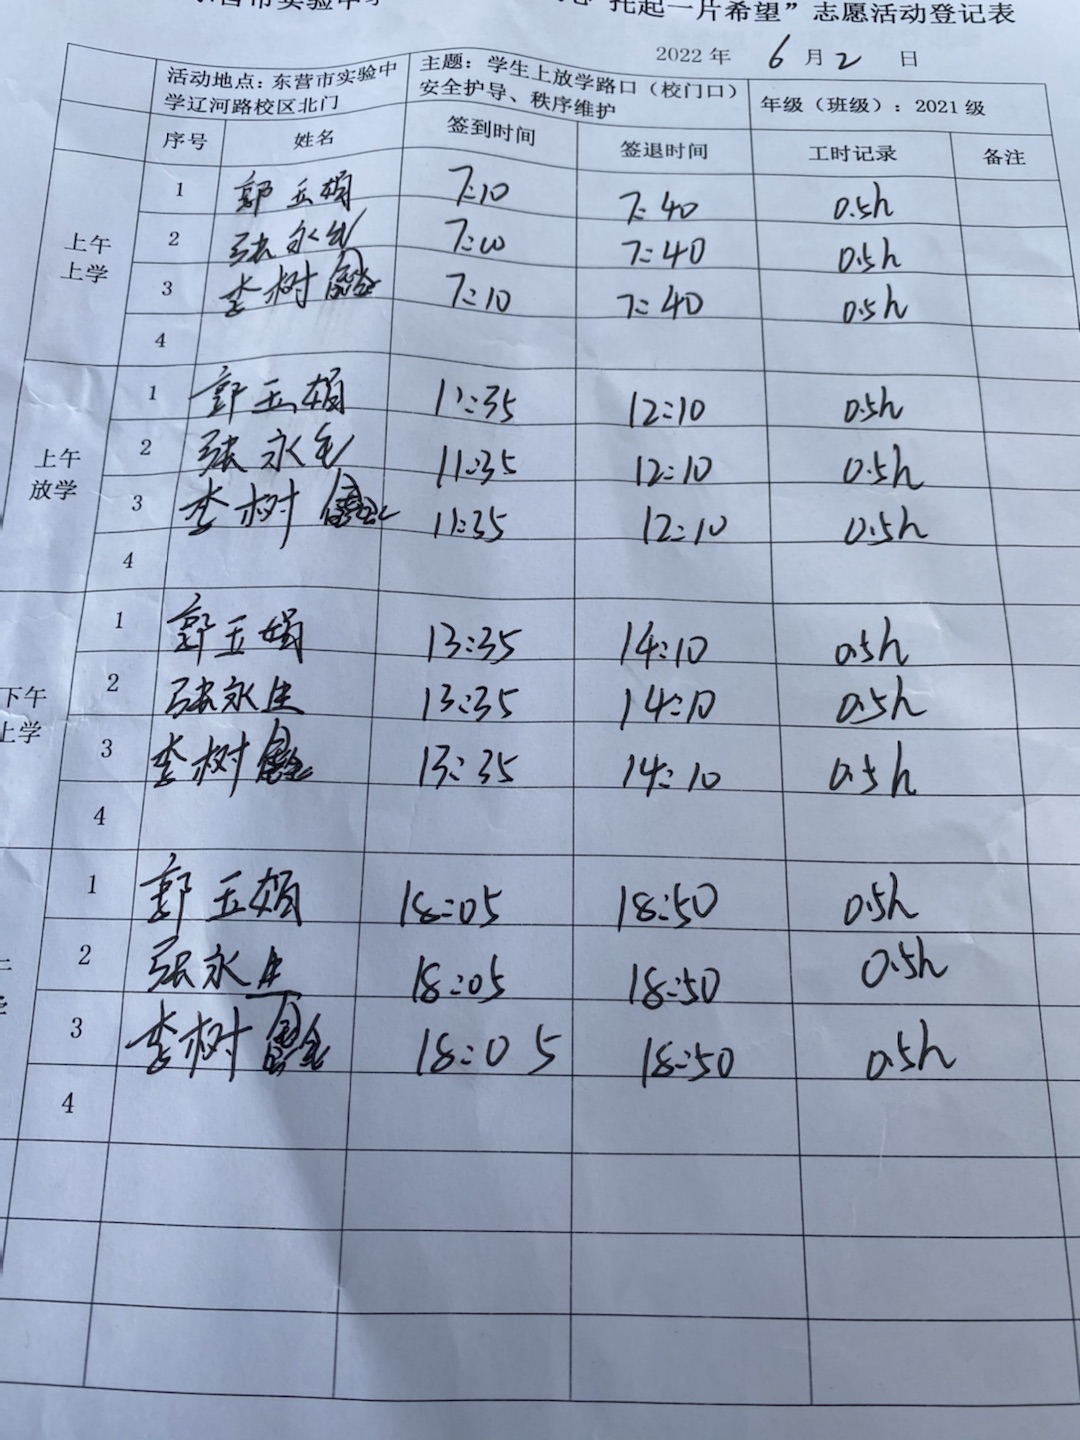 东营市实验中学 “托起一片希望”志愿活动登记表
2022年 6月2日
活动地点：东营市实验中学辽河路校区北门 主题：学生上放学路口（校门口）安全护导、秩序维护 年级（班级）：2021级
序号 姓名 签到时间 签退时间 工时记录 备注
上午上学
1 郭玉娟 7:10 7:40 0.5h
2 张永生 7:10 7:40 0.5h
3 李树 7:10 7:40 0.5h
4
上午放学
1 郭玉娟 11:35 12:10 0.5h
2 张永生 11:35 12:10 0.5h
3 李树 11:35 12:10 0.5h
4
下午上学
1 郭玉娟 13:35 14:10 0.5h
2 张永生 13:35 14:10 0.5h
3 李树 13:35 14:10 0.5h
4
1 郭玉娟 18:05 18:50 0.5h
2 张永生 18:05 18:50 0.5h
3 李树 18:05 18:50 0.5h
4